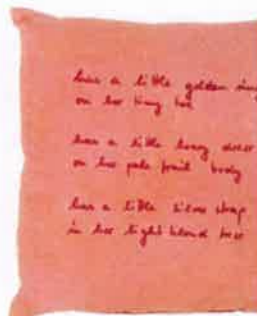 has a little golden ring
on her tiny toe
has a little
on her pale frail body
has a little silver strap
in her light blond hair